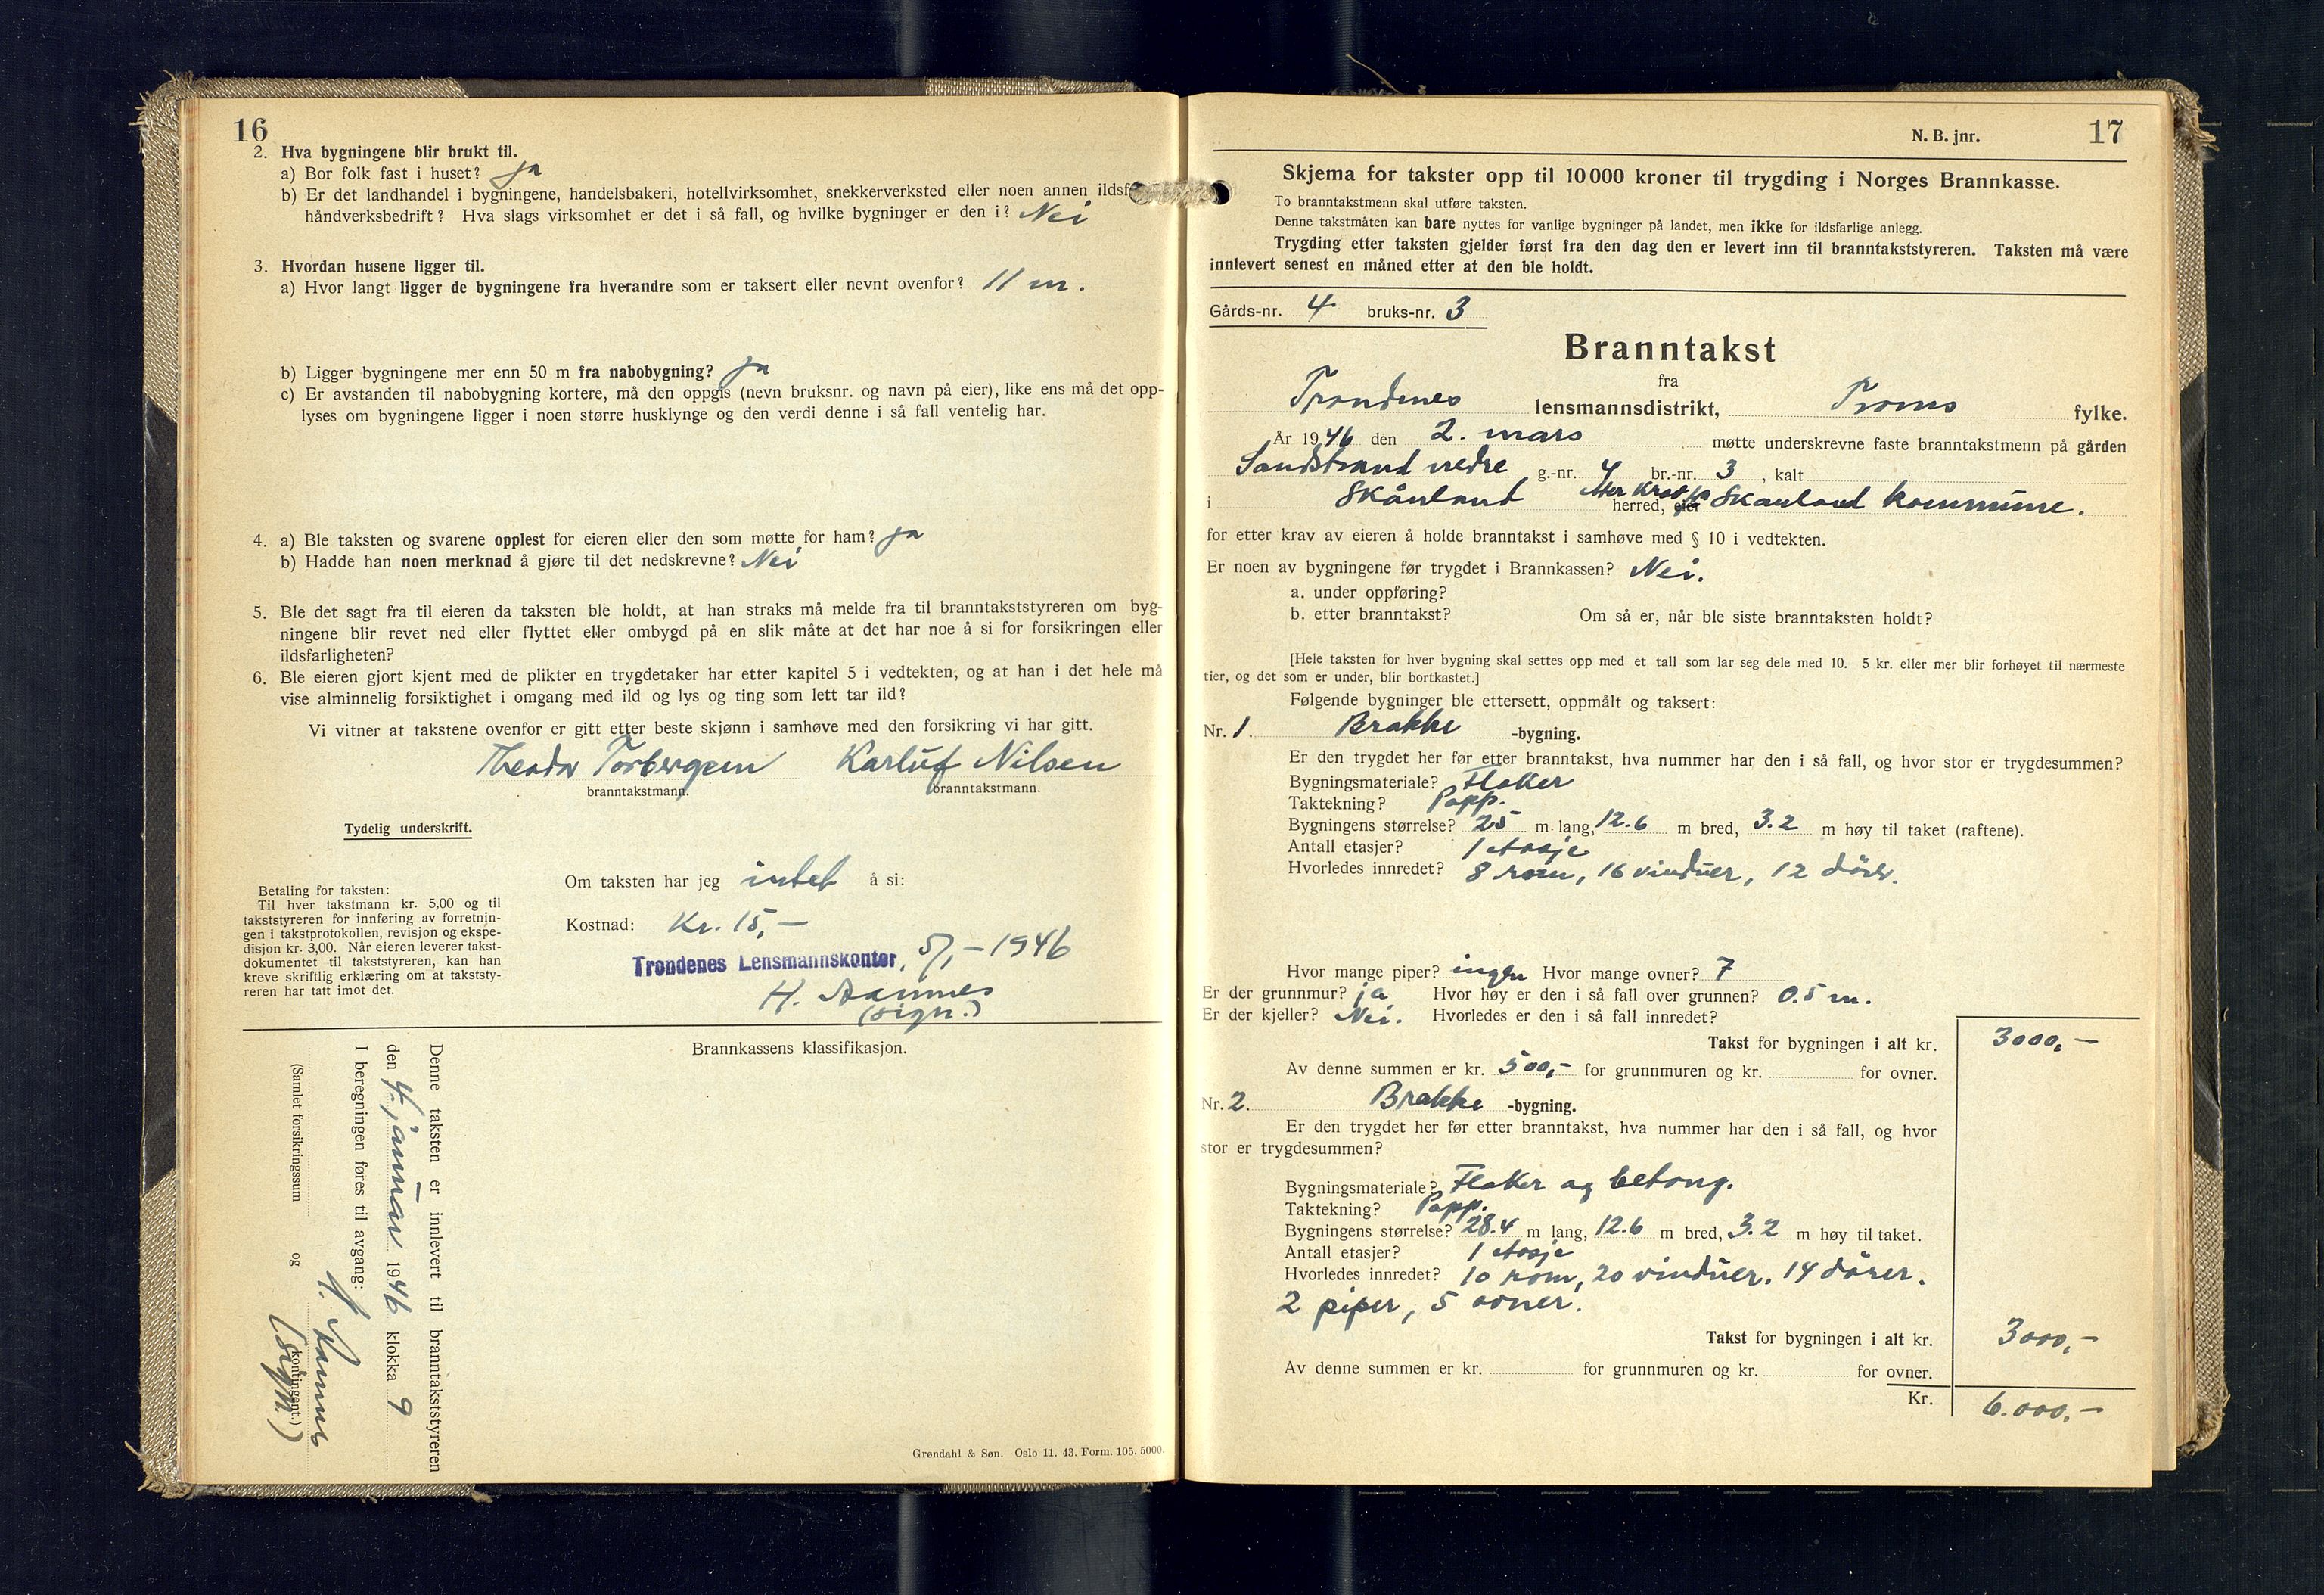 16
2. Hva bygningene blir brukt til.
a) Bor folk fast i huset? ja
b) Er det landhandel i bygningene, handelsbakeri, hotellvirksomhet, snekkerverksted eller noen annen
håndverksbedrift? Hva slags virksomhet er det i så fall, og hvilke bygninger er den i? Nei
3. Hvordan husene ligger til.
a) Hvor langt ligger de bygningene fra hverandre som er taksert eller nevnt ovenfor? 11 m.
b) Ligger bygningene mer enn 50 m fra nabobygning? ja
c) Er avstanden til nabobygning kortere, må den oppgis (nevn bruksnr. og navn på eier), like ens må det opp-
lyses om bygningene ligger i noen større husklynge og den verdi denne i så fall ventelig har.
4. a) Ble taksten og svarene opplest for eieren eller den som møtte for ham? ja
b) Hadde han noen merknad å gjøre til det nedskrevne? Nei
5. Ble det sagt fra til eieren da taksten ble holdt, at han straks må melde fra til branntakststyreren om byg-
ningene blir revet ned eller flyttet eller ombygd på en slik måte at det har noe å si for forsikringen eller
ildsfarligheten?
6. Ble eieren gjort kjent med de plikter en trygdetaker har etter kapitel 5 i vedtekten, og at han i det hele må
vise alminnelig forsiktighet i omgang med ild og lys og ting som lett tar ild?
Vi vitner at takstene ovenfor er gitt etter beste skjønn i samhøve med den forsikring vi har gitt.
Theodor Torbergsen Karluf Nilsen
branntakstmann. branntakstmann.
Tydelig underskrift.
Om taksten har jeg intet å si:
Betaling for taksten:
Til hver takstmann kr. 5,00 og til
takststyreren for innføring av forretnin-
gen i takstprotokollen, revisjon og ekspe-
disjon kr. 3,00. Når eieren leverer takst-
dokumentet til takststyreren, kan han
kreve skriftlig erklæring om at takststy-
reren har tatt imot det.
Kostnad: Kr. 15,-
Trondenes Lensmannskontor, 5/1-1946
H.
(sign.)
Brannkassens klassifikasjon.
Denne taksten er innlevert til branntakststyreren
den 4. januar 1946 klokka 9
I beregningen føres til avgang:
H.
(Samlet forsikringssum og kontingent.)
(sign.)
Grøndahl & Søn. Oslo 11. 43. Form. 105. 5000.
N. B. jnr. 17
Skjema for takster opp til 10 000 kroner til trygding i Norges Brannkasse.
To branntakstmenn skal utføre taksten.
Denne takstmåten kan bare nyttes for vanlige bygninger på landet, men ikke for ildsfarlige anlegg.
Trygding etter taksten gjelder først fra den dag den er levert inn til branntakststyreren. Taksten må være
innlevert senest en måned etter at den ble holdt.
Gårds-nr. 4 bruks-nr. 3
Branntakst
fra
Trondenes lensmannsdistrikt, Troms fylke.
År 1946 den 2. mars møtte underskrevne faste branntakstmenn på gården
Sandstrand nedre g.-nr. 4 br.-nr. 3, kalt
i Skånland herred, eier Skånland kommune.
for etter krav av eieren å holde branntakst i samhøve med § 10 i vedtekten.
Er noen av bygningene før trygdet i Brannkassen? Nei.
a. under oppføring?
b. etter branntakst? Om så er, når ble siste branntaksten holdt?
[Hele taksten for hver bygning skal settes opp med et tall som lar seg dele med 10. 5 kr. eller mer blir forhøyet til nærmeste
tier, og det som er under, blir bortkastet.]
Følgende bygninger ble ettersett, oppmålt og taksert:
Nr. 1. Brakke -bygning.
Er den trygdet her før etter branntakst, hva nummer har den i så fall, og hvor stor er trygdesummen?
Bygningsmateriale? Flaker
Taktekning? Papp.
Bygningens størrelse? 25 m lang, 12.6 m bred, 3.2 m høy til taket (raftene).
Antall etasjer? 1 etasje
Hvorledes innredet? 8 rom, 16 vinduer, 12 dörer.
Hvor mange piper? ingen Hvor mange ovner? 7
Er der grunnmur? ja Hvor høy er den i så fall over grunnen? 0.5 m.
Er der kjeller? Nei. Hvorledes er den i så fall innredet?
Takst for bygningen i alt kr. 3000,-
Av denne summen er kr. 500,- for grunnmuren og kr. for ovner.
Nr. 2. Brakke -bygning.
Er den trygdet her før etter branntakst, hva nummer har den i så fall, og hvor
stor er trygdesummen?
Bygningsmateriale? Flaker og betong.
Taktekning? Papp.
Bygningens størrelse? 28.4 m lang, 12.6 m bred, 3.2 m høy til taket.
Antall etasjer? 1 etasje
Hvorledes innredet? 10 rom, 20 vinduer, 14 dörer.
2 piper, 5 ovner.
Takst for bygningen i alt kr. 3000,-
Av denne summen er kr. for grunnmuren og kr. for ovner.
Kr. 6.000,-